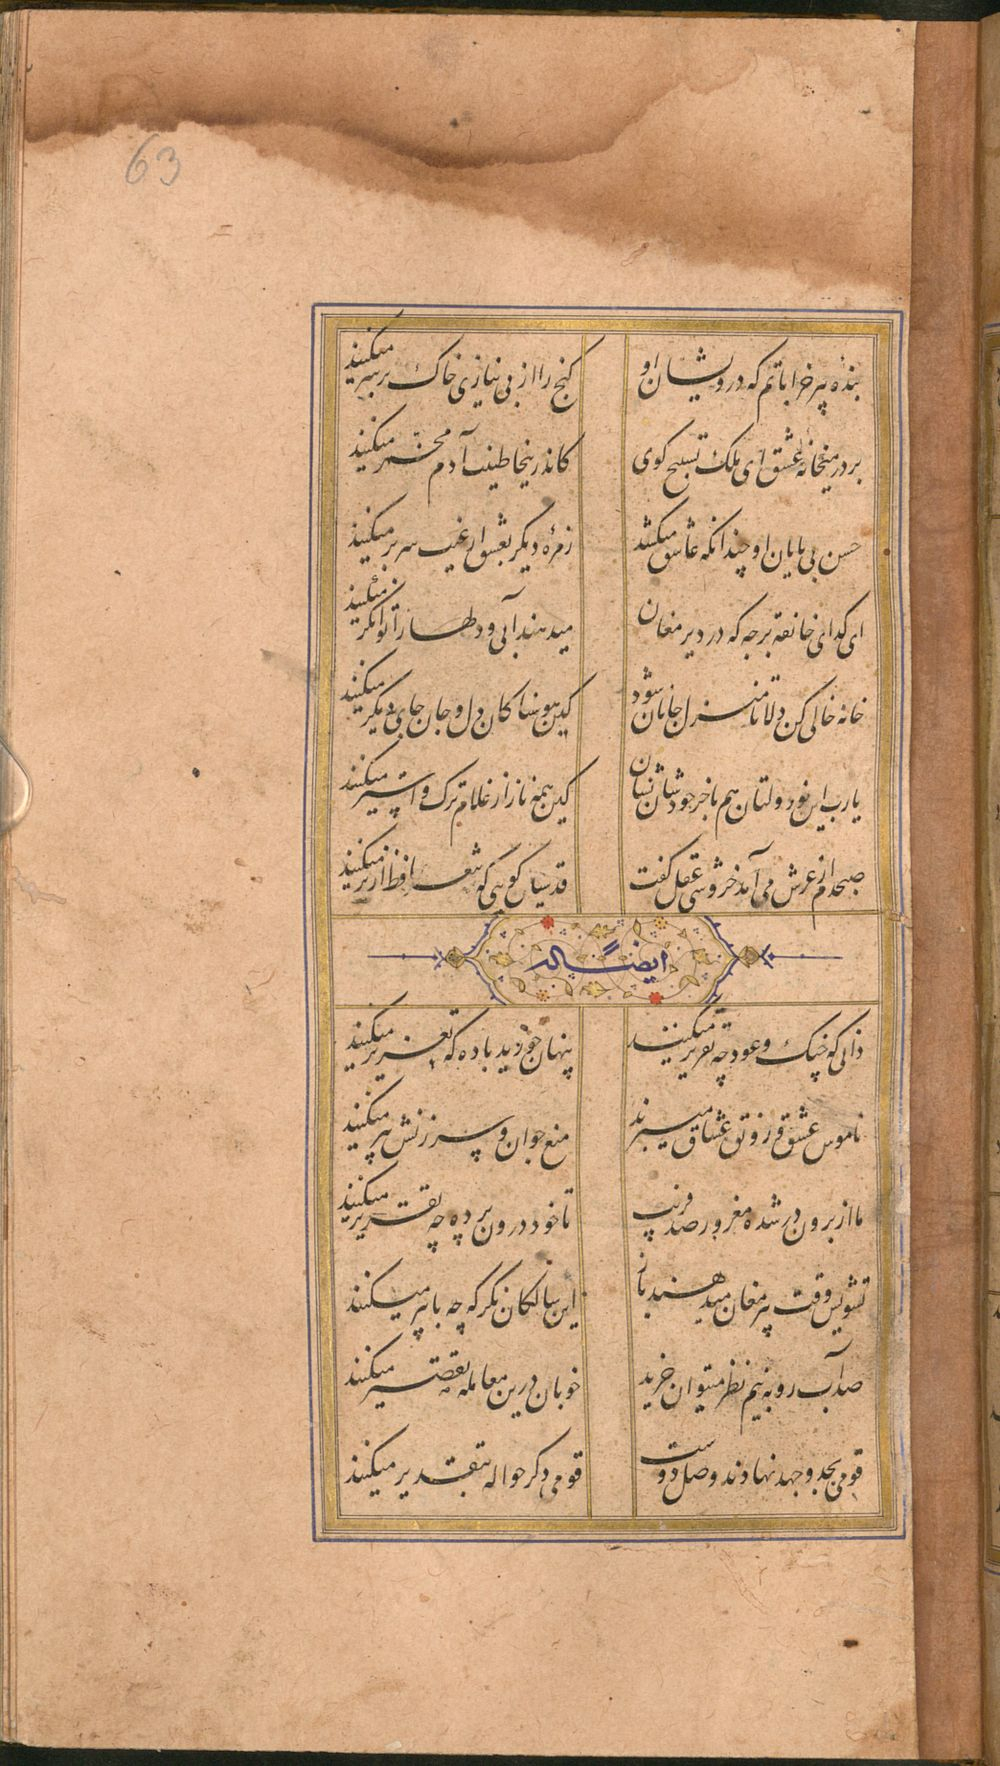 63
بنده پیر خراباتم که درویشان او
کنج را از بی نیازی خاک بر سر میکنند
بر در میخانه عشق ای ملک تسبیح کوی
کاندر اینجا طینت آدم مخمر میکنند
حسن بی پایان او چندانکه عاشق میکشد
زمره دیگر بعشق از غیب سر بر میکنند
ای کدای خانقه برجه که در دیر مغان
میدهند آبی و دلها را توانکر میکنند
خانه خالی کن دلا تا منزل جانان شود
کین هوسناکان دل و جان جای دیگر میکنند
یا رب این نودولتان هم با خر خودشان نشان
کین همه ناز از غلام ترک و استر میکنند
صبحدم از عرش می آمد خروشی عقل کفت
قدسیان کویی که شعر حافظ از بر میکنند
ایضاً له
دانی که چنک و عود چه تقریر میکنند
پنهان خورید باده که تعزیر میکنند
ناموس عشق و رونق عشاق میبرند
منع جوان و سرزنش پیر میکنند
ما از برون در شده مغرور صد فریب
تا خود درون پرده چه تقریر میکنند
تشویش وقت پیر مغان میدهند باز
این سالکان نکر که چه با پیر میکنند
صد آب رو به نیم نظر میتوان خرید
خوبان درین معامله تقصیر میکنند
قومی بجد و جهد نهادند وصل دوست
قومی دکر حواله بتقدیر میکنند